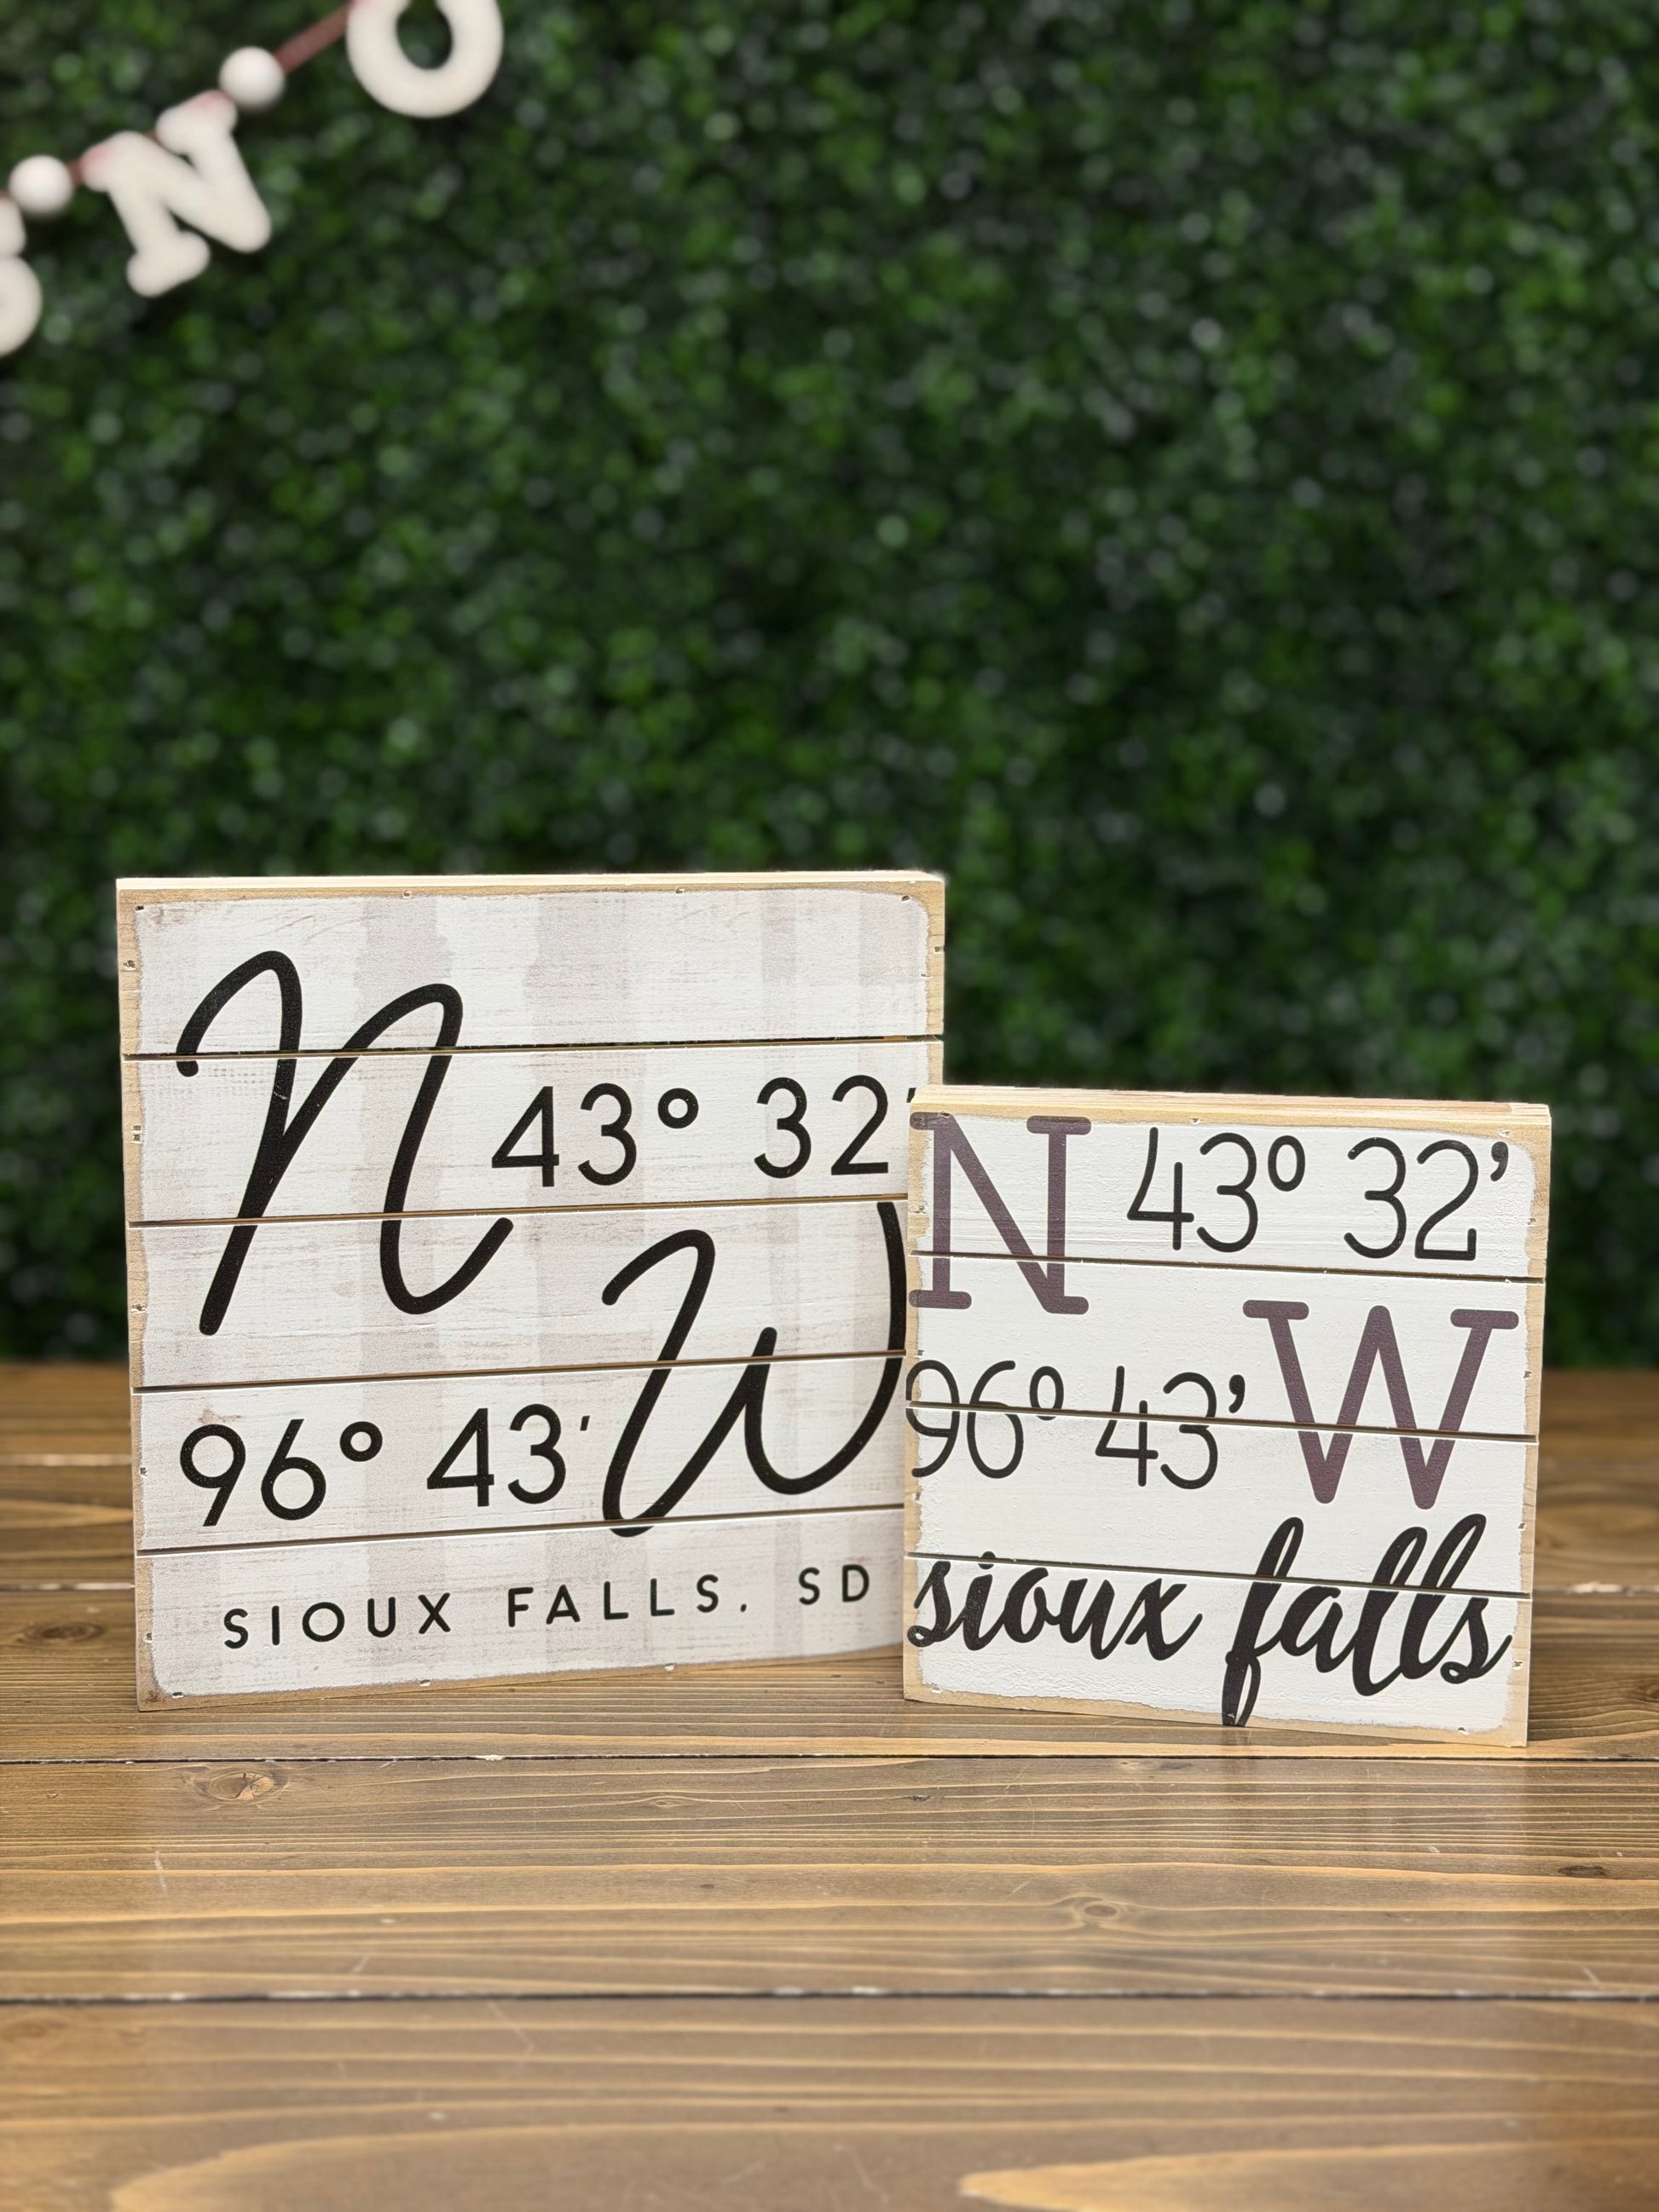 N O
N 43° 32'
96° 43' W
SIOUX FALLS, SD
N 43° 32'
96° 43' W
sioux falls